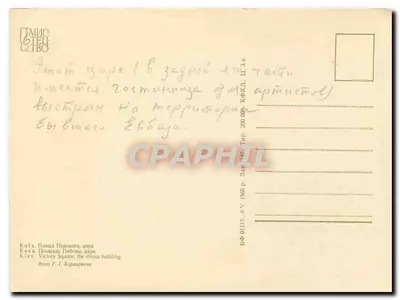 МИС
ТЕЦ
ТВО
Этот цирк (в задней его части
имеется гостиница для артистов)
выстроен на территории
бывшего Евбаза.
CPARHPIL
Київ. Площа Перемоги, цирк
Киев. Площадь Победы, цирк
Kiev. Victory Square; the circus building
Фото Г. Г.
БФ 01113. 6 V 1965 р. Зам. Тир. 200 000. КФКД. Ц. 3 к.